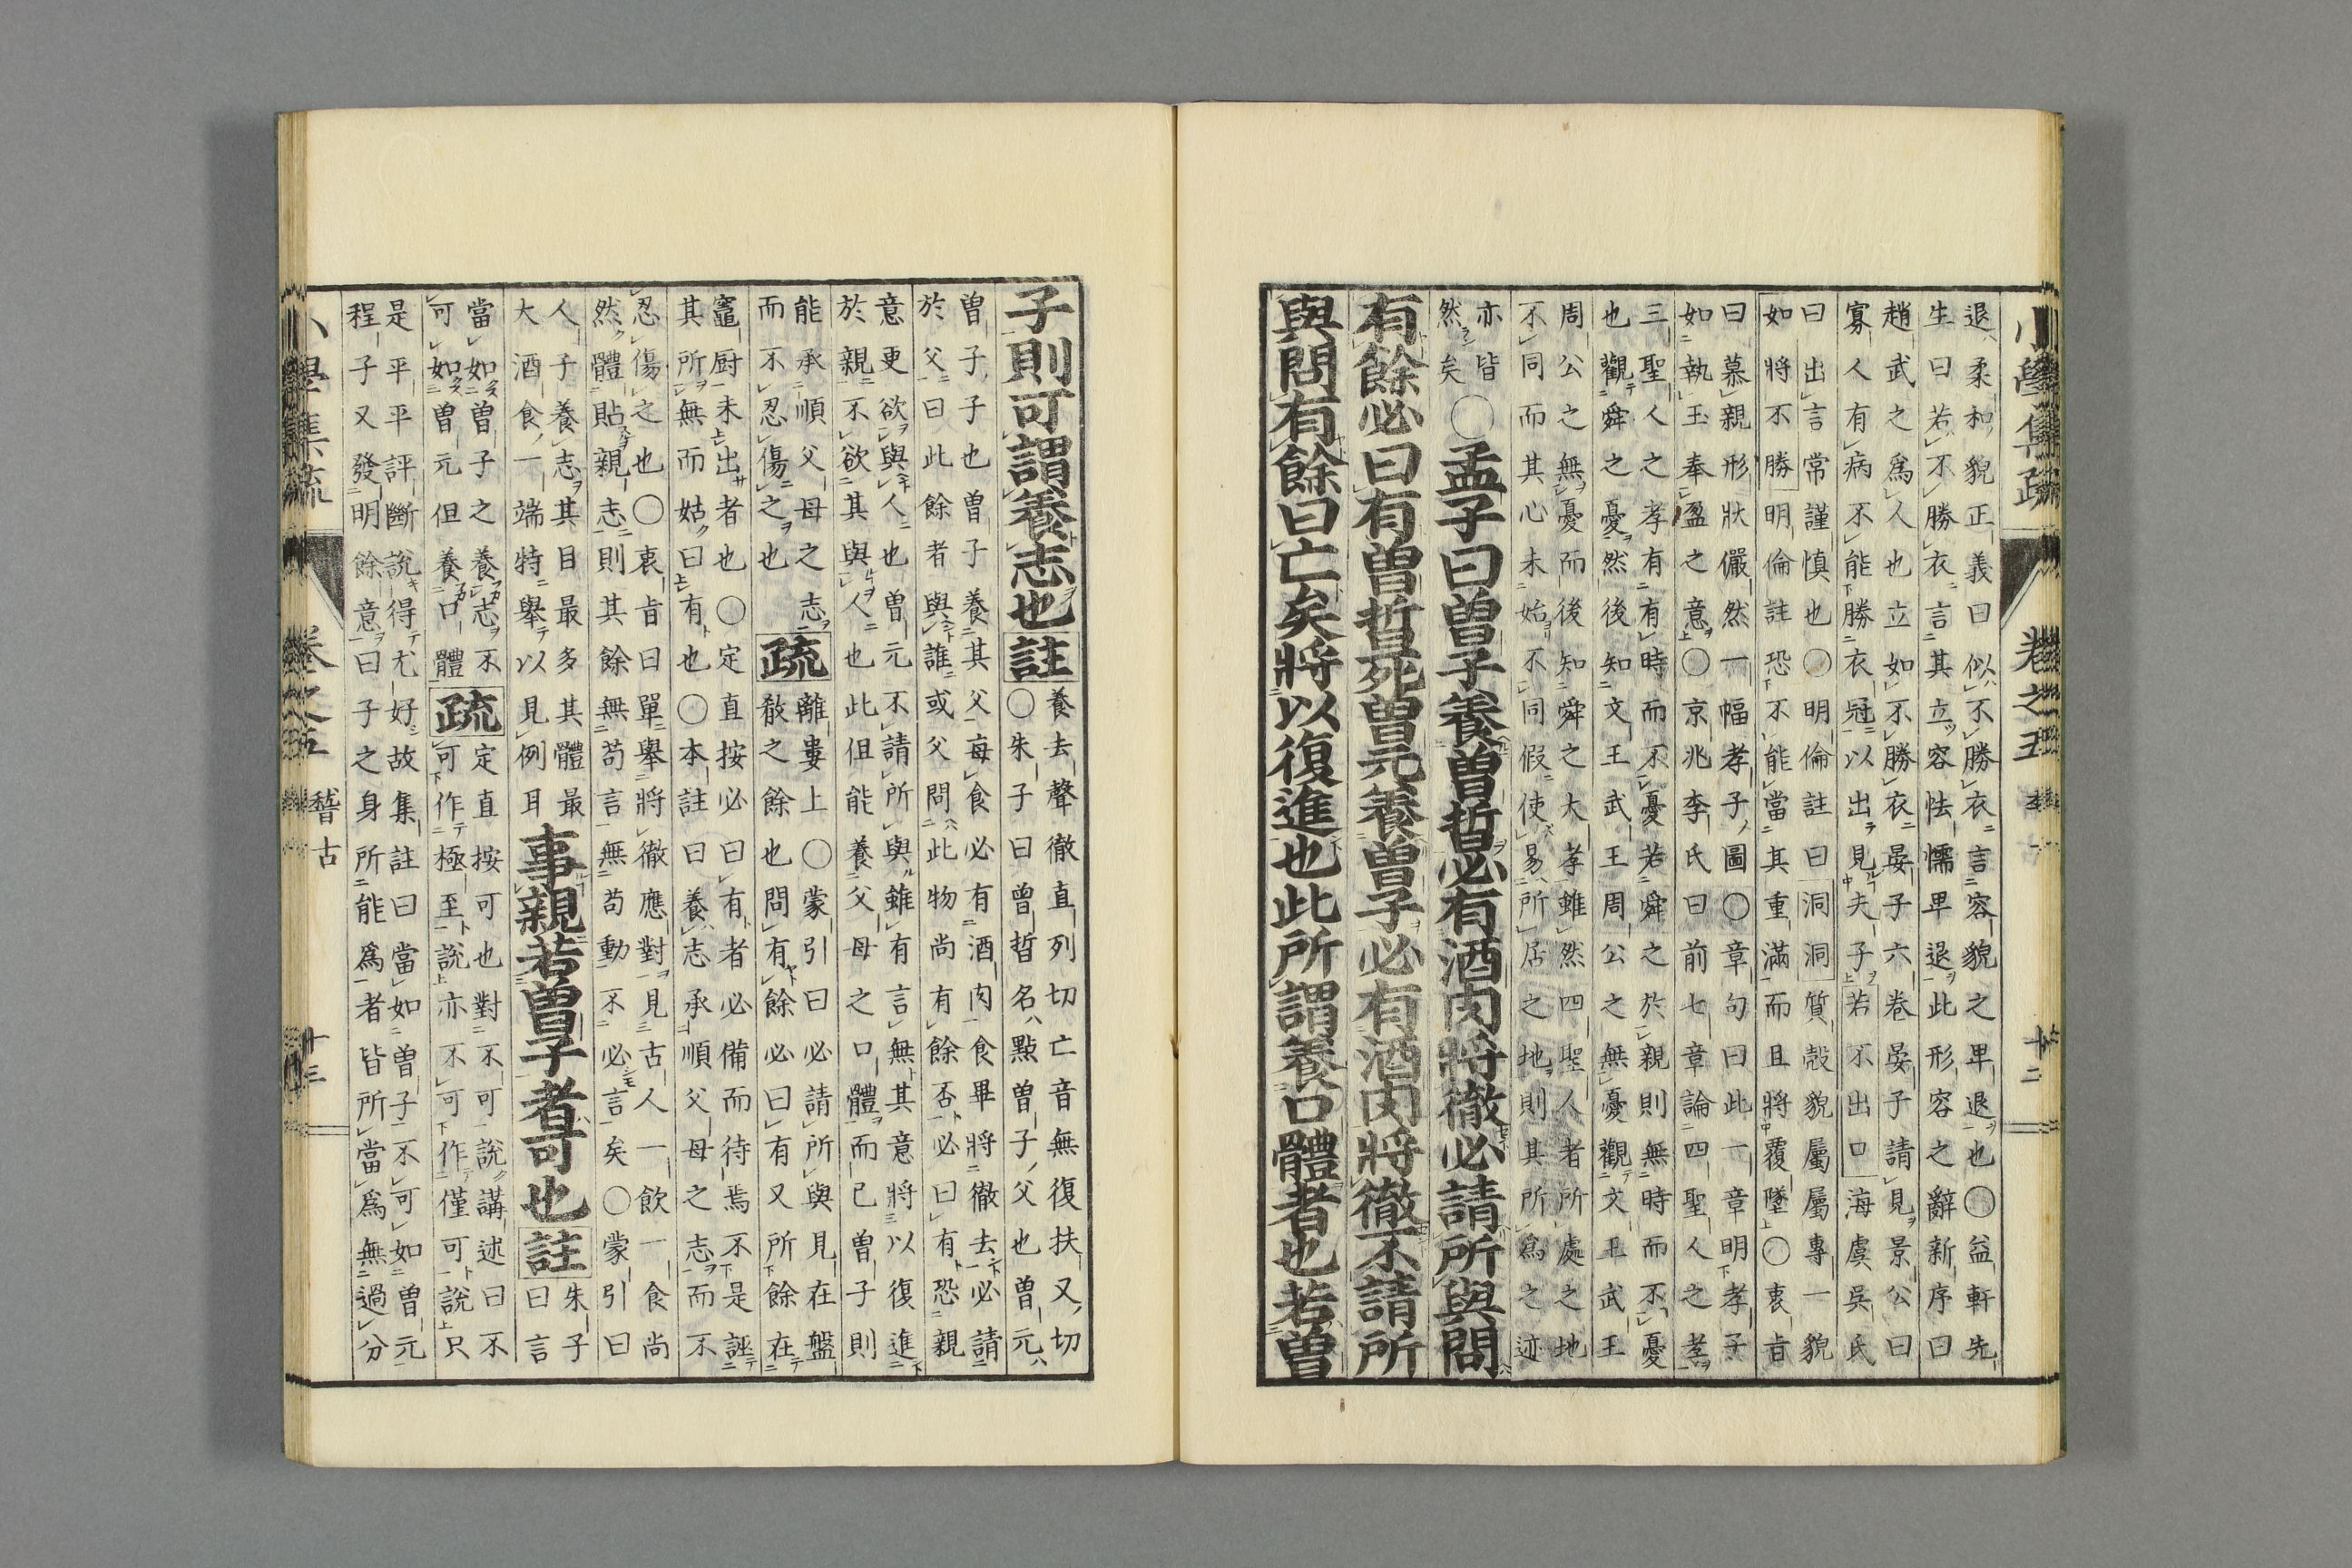 小學集疏
卷之五
十二
退柔和貌正義曰似不勝衣言容貌之卑退也〇益軒先
生曰若不勝衣言其立容怯懦卑退此形容之辭新序曰
趙武之爲人也立如不勝衣晏子六卷晏子請見景公曰
寡人有病不能勝衣冠以出見夫子若不出口海虞吳氏
曰出言常謹慎也〇明倫註曰洞洞質慤貌屬屬專一貌
如將不勝明倫註恐不能當其重滿而且將覆墜〇衷旨
曰慕親形狀儼然一幅孝子圖〇章句曰此一章明孝子
如執玉奉盈之意〇京兆李氏曰前七章論四聖人之孝
三聖人之孝有有時而不憂若舜之於親則無時而不憂
也觀舜之憂然後知文王武王周公之無憂觀文王武王
周公之無憂而後知舜之大孝雖然四聖人者所處之地
不同而其心未始不同假使易所居之地則其所爲之迹
亦皆
然矣〇孟子曰曾子養曾晳必有酒肉將徹必請所與問
有餘必曰有曾晳死曾元養曾子必有酒肉將徹不請所
與問有餘曰亡矣將以復進也此所謂養口體者也若曾
子則可謂養志也註養去聲徹直列切亡音無復扶又切
〇朱子曰曾晳名點曾子父也曾元
曾子子也曾子養其父每食必有酒肉食畢將徹去必請
於父曰此餘者與誰或父問此物尚有餘否必曰有恐親
意更欲與人也曾元不請所與雖有言無其意將以復進
於親不欲其與人也此但能養父母之口體而已曾子則
能承順父母之志
而不忍傷之也疏離婁上〇蒙引曰必請所與見在盤
散之餘也問有餘必曰有又所餘在
竈厨未出者也〇定直按必曰有者必備而待焉不是誣
其所無而姑曰有也〇本註曰養志承順父母之志而不
忍傷之也〇衷旨曰單舉將徹應對見古人一飲一食尚
然體貼親志則其餘無苟言無苟動不必言矣〇蒙引曰
人子養志其目最多其體最
大酒食一端特舉以見例耳事親若曾子者可也註朱子
曰言
當如曾子之養志不
可如曾元但養口體疏定直按可也對不可說講述曰不
可作極至說亦不可作僅可說只
是平平評斷說得尤好故集註曰當如曾子不可如曾元
程子又發明餘意曰子之身所能爲者皆所當爲無過分
小學集疏
卷之五
稽古
十三